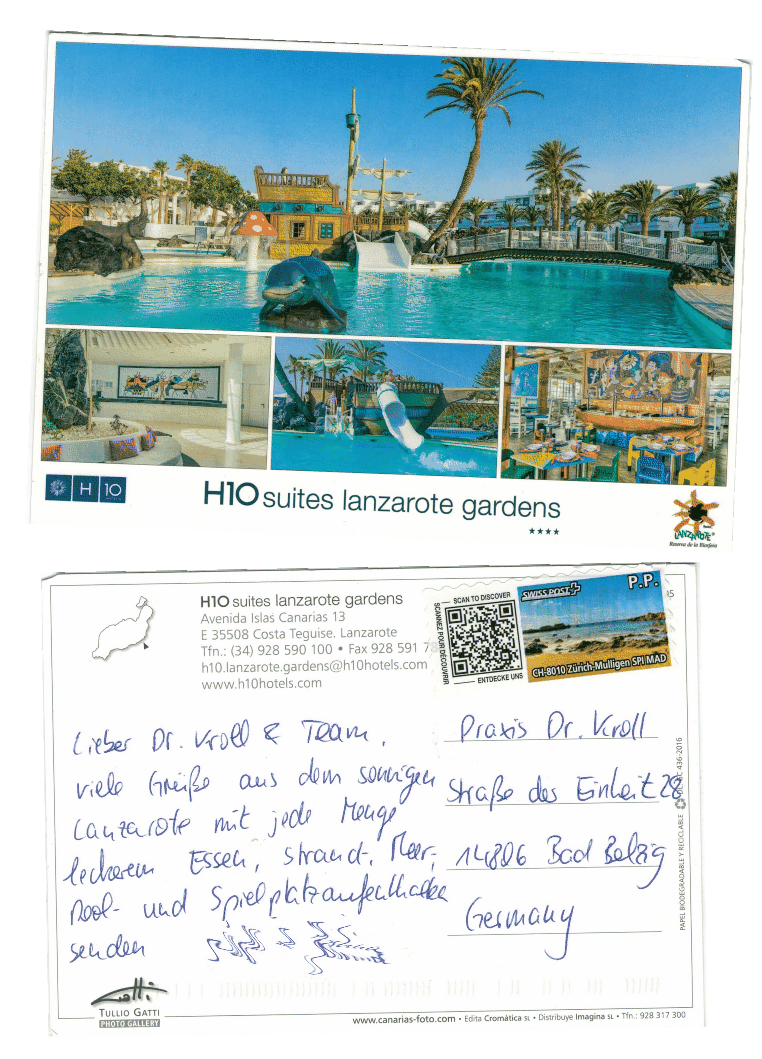 H10
HOTELS
H10 suites lanzarote gardens
★★★★
LANZAROTE
Reserva de la Biosfera
H10 suites lanzarote gardens
Avenida Islas Canarias 13
E 35508 Costa Teguise. Lanzarote
Tfn.: (34) 928 590 100 • Fax 928 591 7
h10.lanzarote.gardens@h10hotels.com
www.h10hotels.com
SCAN TO DISCOVER
SCANNEZ POUR DÉCOUVRIR
ENTDECKE UNS
SWISS POST
P.P.
CH-8010 Zürich-Mulligen SPI MAD
Lieber Dr. Kroll & Team,
viele Grüße aus dem sonnigen
Lanzarote mit jede Menge
leckerem Essen, Strand-, Meer-,
Pool- und Spielplatzaufenthalten
senden
Praxis Dr. Kroll
Straße des Einheit 28
14806 Bad Belzig
Germany
PAPEL BIODEGRADABLE Y RECICLABLE
436-2016
TULLIO GATTI
PHOTO GALLERY
www.canarias-foto.com • Edita Cromática SL • Distribuye Imagina SL • Tfn.: 928 317 300